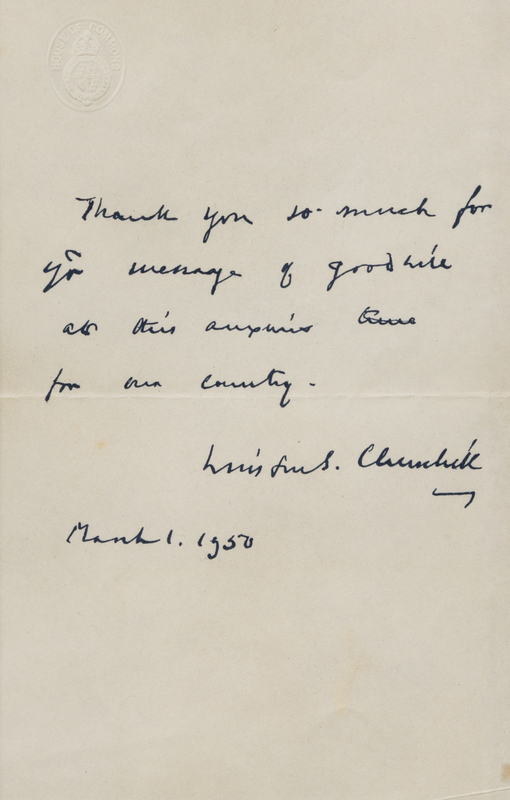 HOUSE OF COMMONS
Thank you so much for
yr message of goodwill
at this anxious time
for our country.
Winston S. Churchill
March 1. 1950